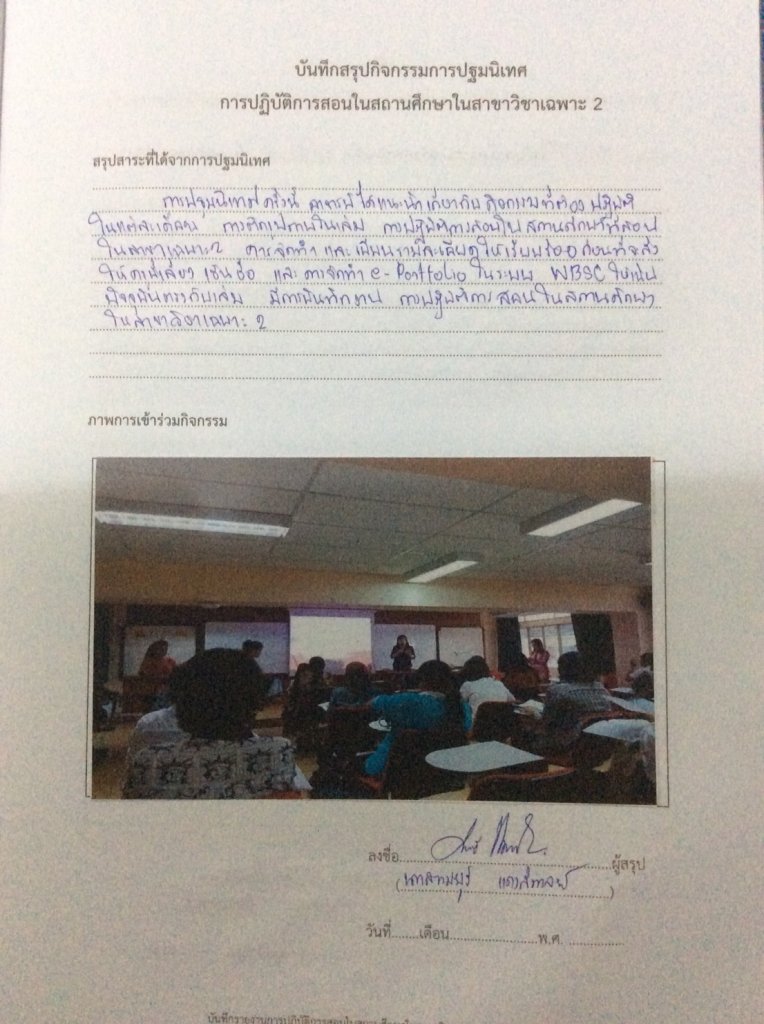 บันทึกสรุปกิจกรรมการปฐมนิเทศ
การปฏิบัติการสอนในสถานศึกษาในสาขาวิชาเฉพาะ 2
สรุปสาระที่ได้จากการปฐมนิเทศ
การปฐมนิเทศครั้งนี้ อาจารย์ได้แนะนำเกี่ยวกับ กิจกรรมที่ต้องปฏิบัติ
ในแต่ละเดือน การปฏิบัติการสอนใน สถานศึกษา
ในสาขาวิชาเฉพาะ 2 การจัดทำ และเขียนรายละเอียดให้เรียบร้อย ก่อนที่จะส่ง
ให้ครูพี่เลี้ยง เซ็นชื่อ และ การจัดทำ e-Portfolio ในระบบ WBSC ให้เป็น
ปัจจุบันตรงกับเล่ม มีการบันทึกงาน การปฏิบัติการสอนในสถานศึกษา
ในสาขาวิชาเฉพาะ 2
ภาพการเข้าร่วมกิจกรรม
ลงชื่อ ผู้สรุป
วันที่ เดือน พ.ศ.